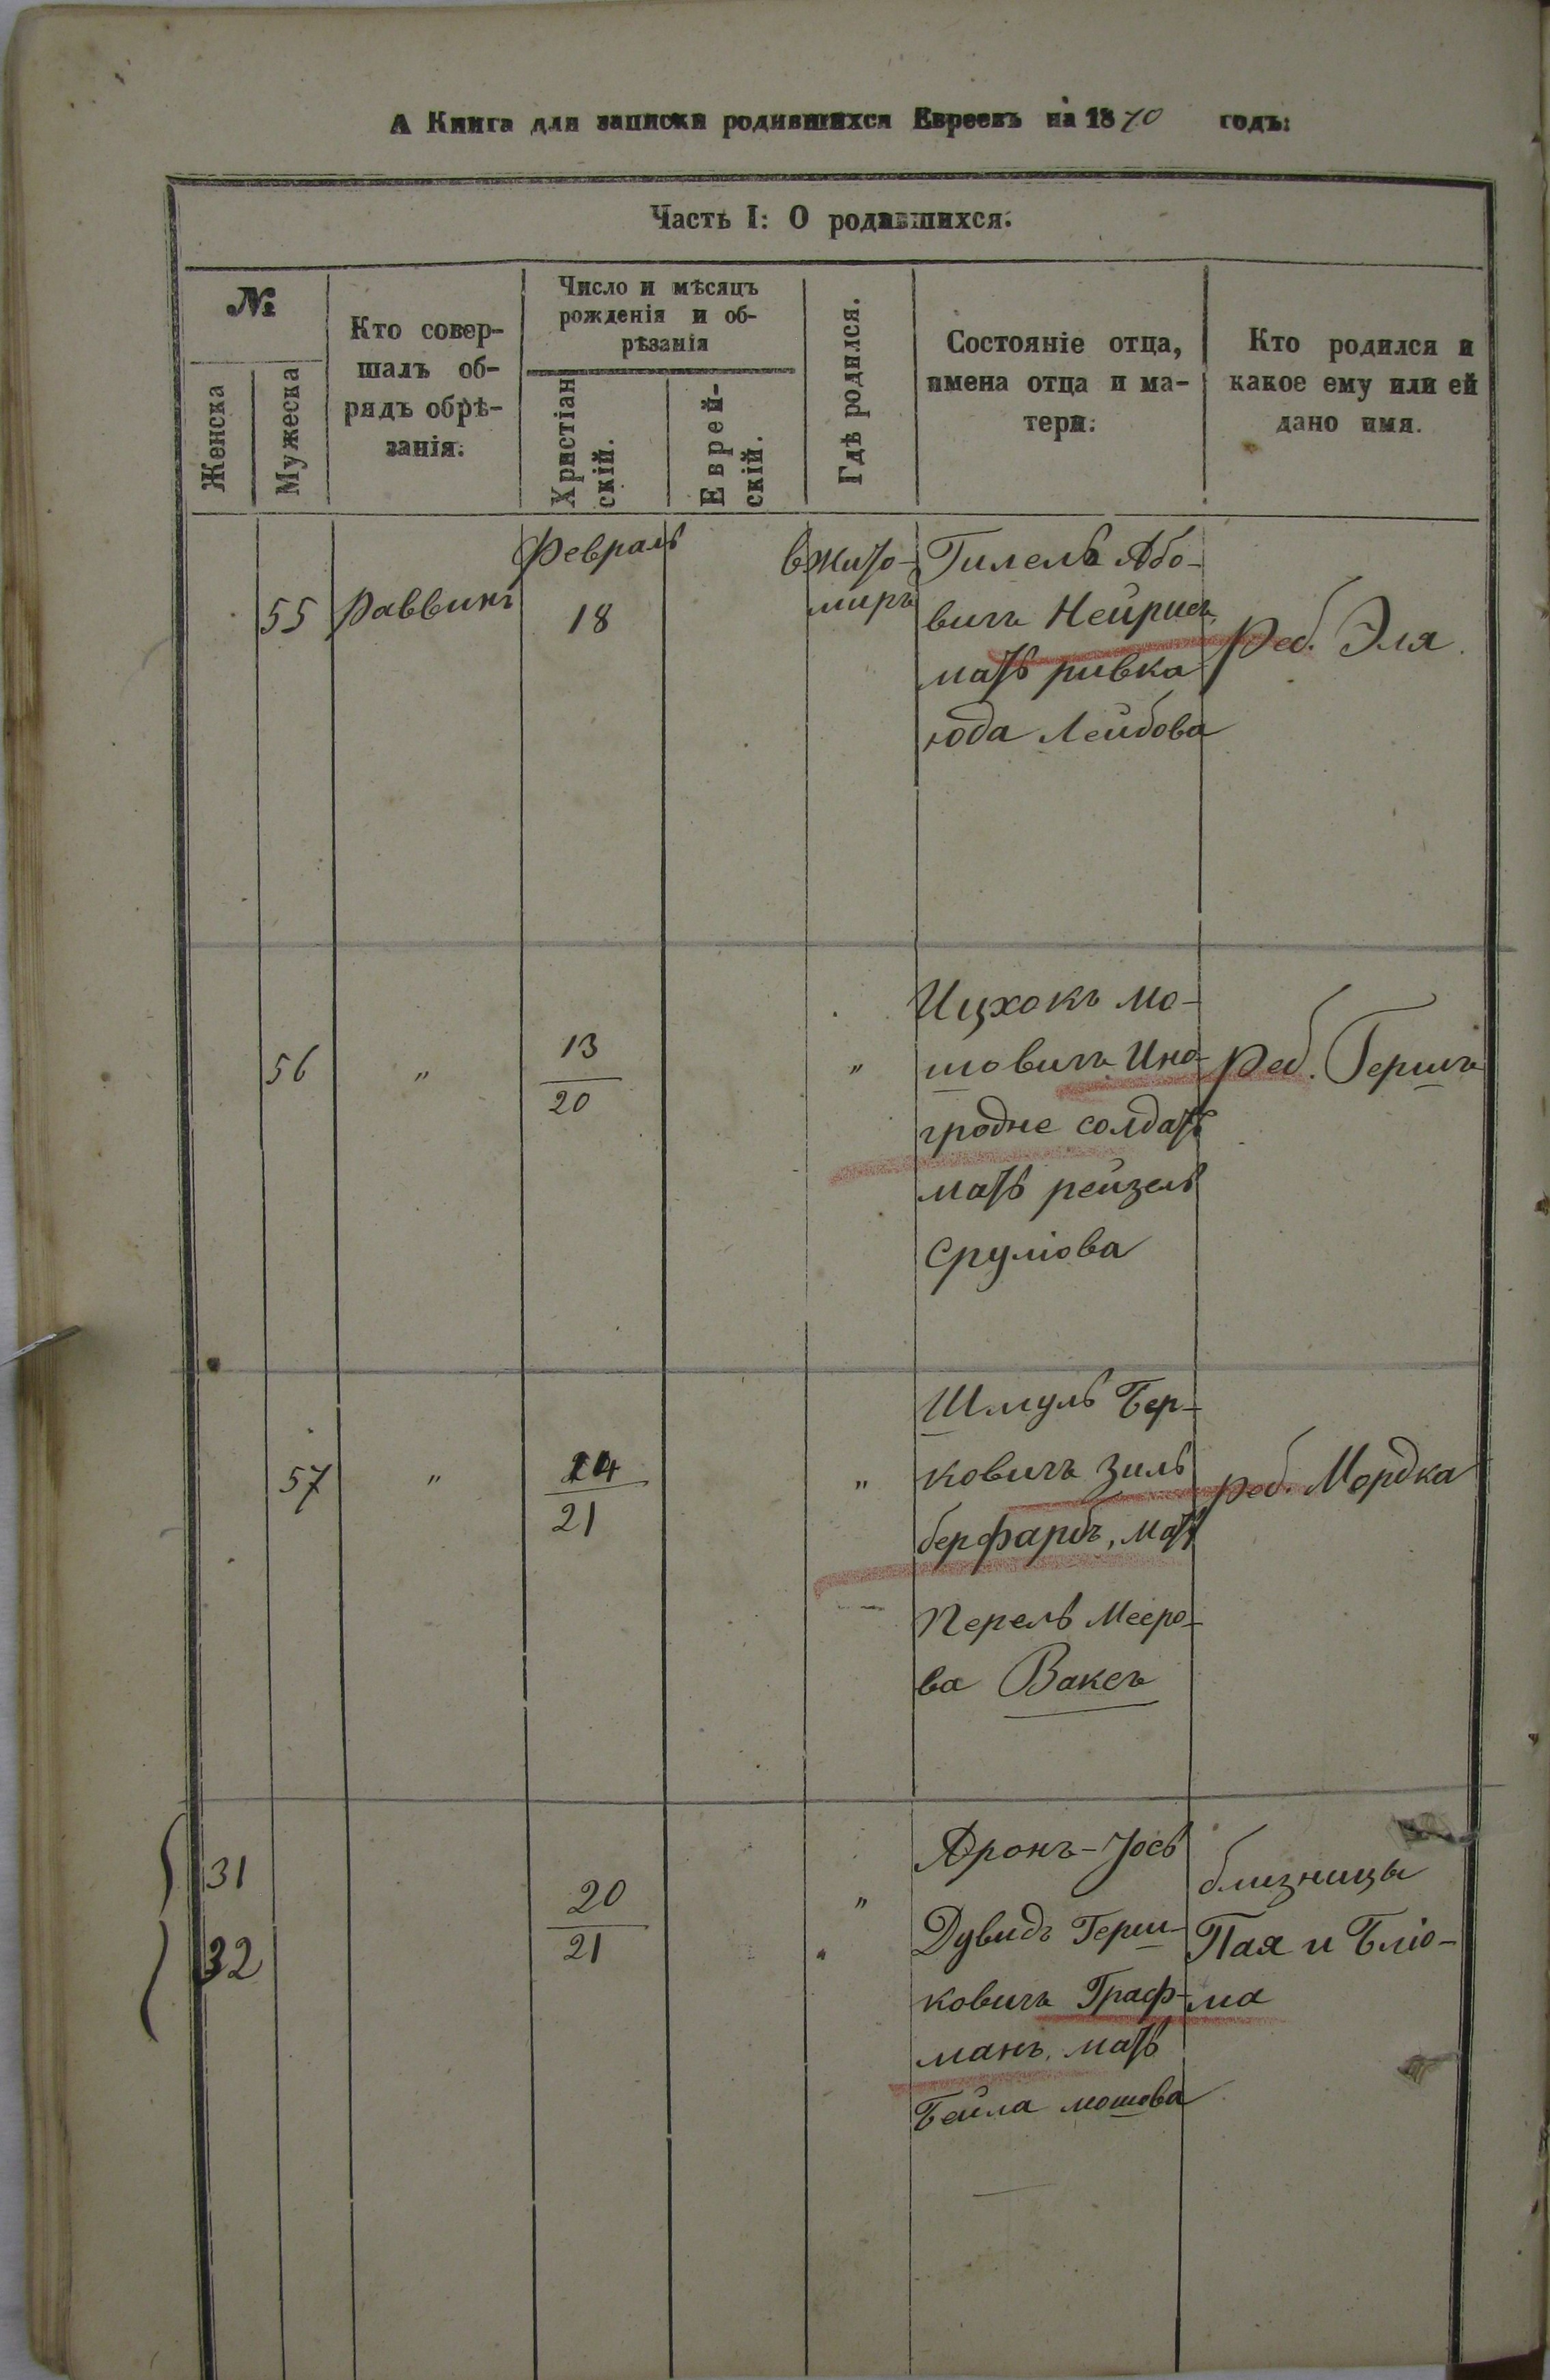 А Книга для записки родившихся Евреевъ на 1870 годъ:
Часть I: О родившихся.
№
Женска
Мужеска
Кто совер-
шалъ об-
рядъ обрѣ-
занія.
Число и мѣсяцъ
рожденія и об-
рѣзанія
Христіан
скій.
Еврей-
скій.
Гдѣ родился.
Состояніе отца,
имена отца и ма-
тери.
Кто родился и
какое ему или ей
дано имя.
55
Раввинъ
Февраль
18
въ Жито-
миръ
Гилель Або-
вичъ Нейрисъ,
мать ривка
юда Лейбова
Реб. Эля.
56
"
13
20
"
Ицхокъ мо-
шовичъ Ино-
гродне солдатъ
мать рейзель
Сруліова
Реб. Гершъ
57
"
14
21
"
Шмуль Бер-
ковичъ Зиль
берфарбъ, мать
Перель Мееро-
ва Ваксъ
Реб. Мордка
31
32
20
21
"
Аронъ-Іось
Дувидъ Герш-
ковичъ Граф-
манъ, мать
Бейла мошова
близницы
Пая и Бліо-
ма